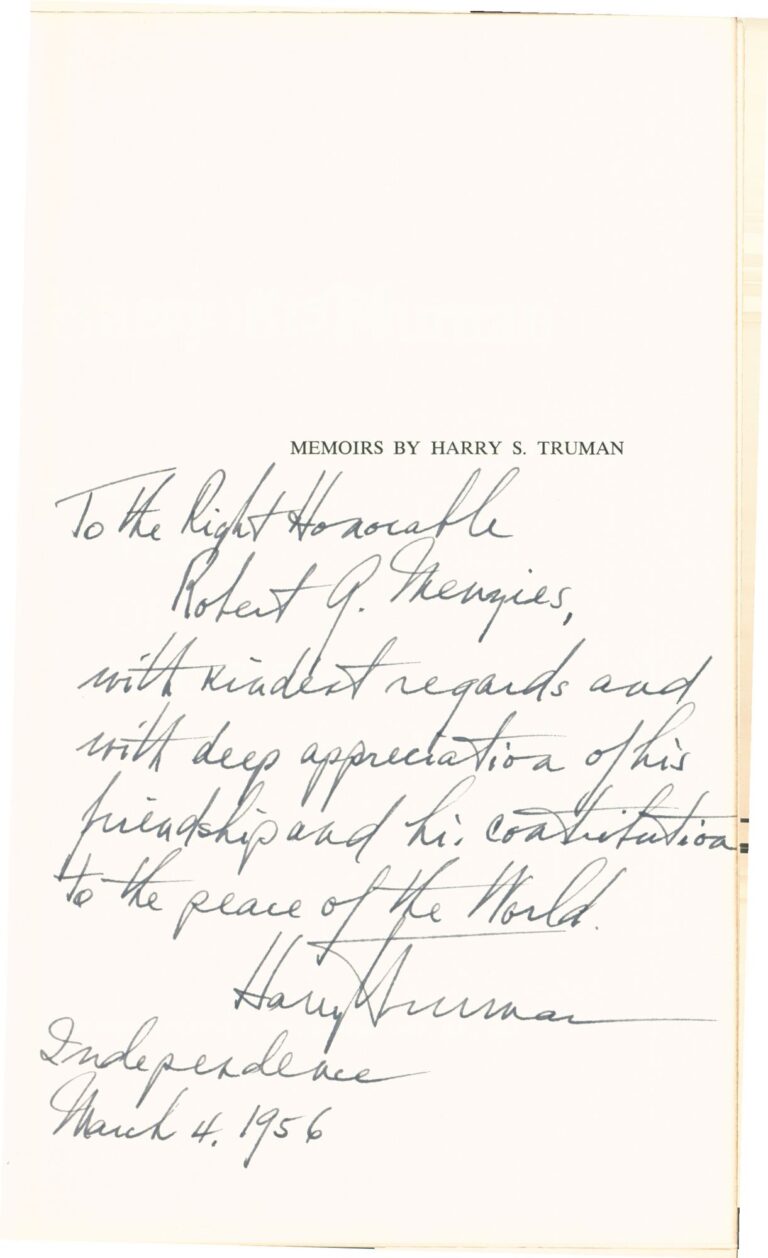 MEMOIRS BY HARRY S. TRUMAN
To the Right Honorable
Robert G. Menzies,
with kindest regards and
with deep appreciation of his
friendship and his contribution
to the peace of the World.
Harry Truman
Independence
March 4, 1956